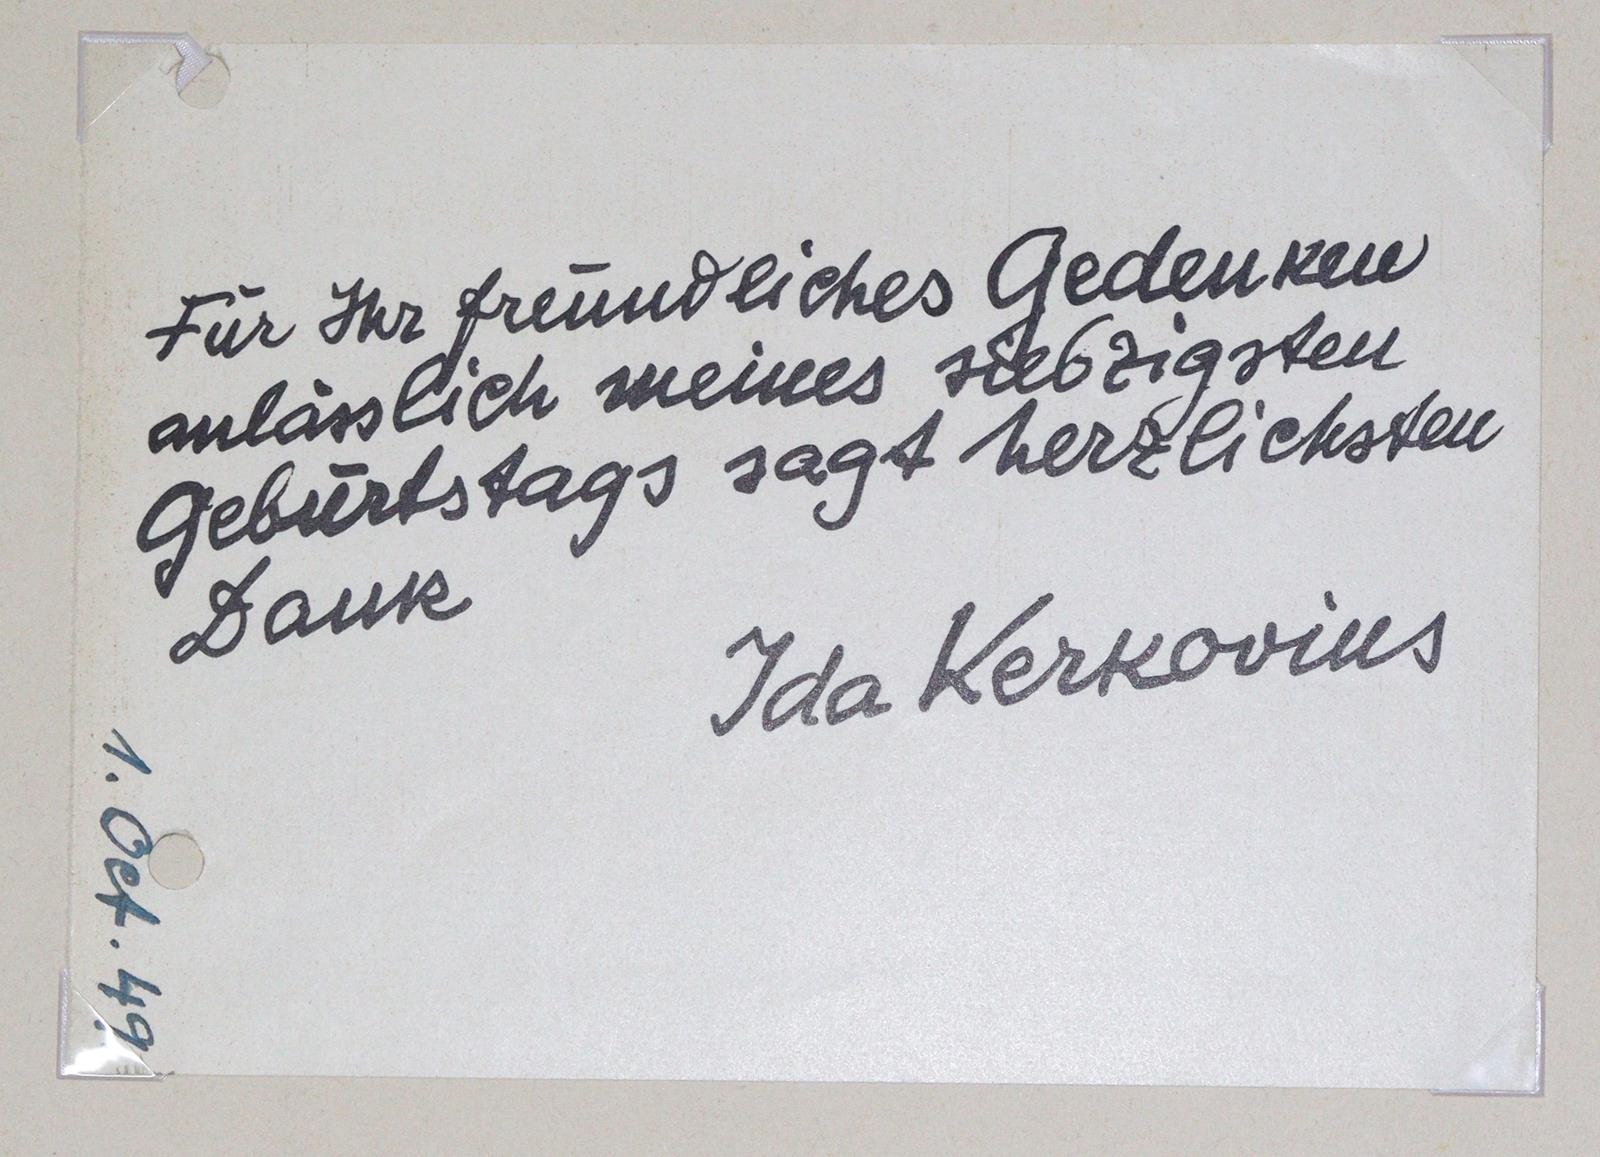 Für Ihr freundliches Gedenken
anlässlich meines siebzigsten
Geburtstags sagt herzlichsten
Dank
Ida Kerkovius
1. Oct. 49